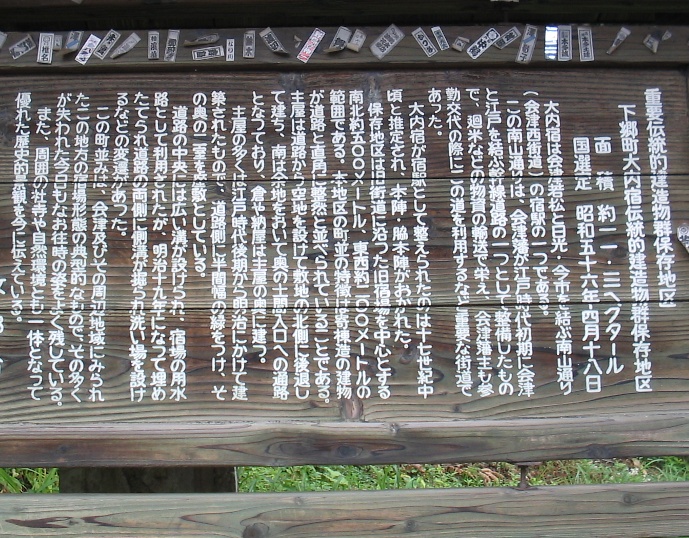 重要伝統的建造物群保存地区
下郷町大内宿伝統的建造物群保存地区
面積 約一一・三ヘクタール
国選定 昭和五十六年四月十八日
大内宿は会津若松と日光・今市を結ぶ南山通り
(会津西街道)の宿駅の一つである。
この南山通りは、会津藩が江戸時代初期に会津
と江戸を結ぶ幹線道路の一つとして整備したもの
で、廻米などの物資の輸送で栄え、会津藩主も参
勤交代の際にこの道を利用するなど重要な街道で
あった。
大内宿が宿駅として整えられたのは十七世紀中
頃と推定され、本陣・脇本陣がおかれた。
保存地区は旧街道に沿った旧宿場を中心とする
南北約五〇〇メートル、東西約二〇〇メートルの
範囲である。本地区の町並の特徴は寄棟造の建物
が道路と直角に整然と並べられていることである。
主屋は道路から空地を設けて敷地の北側に後退し
て建ち、南に余地をおいて奥の土間入口への通路
となっており、倉や納屋は主屋の奥に建つ。
主屋の多くは江戸時代後期から明治にかけて建
築されたもので、道路側に半間幅の縁をつけ、そ
の奥の二室を座敷としている。
道路の中央には広い溝が設けられ、宿場の用水
路として利用されたが、明治十九年になって埋め
たてられ道路の両側に側溝が掘られ洗い場を設け
るなどの変遷があった。
この町並みは、会津及びその周辺地域にみられ
たこの地方の宿場形態の典型的なもので、その多く
が失われた今日もなお往時の姿をよく残している。
また、周囲の社寺や自然環境とも一体となって
優れた歴史的景観を今に伝えている。